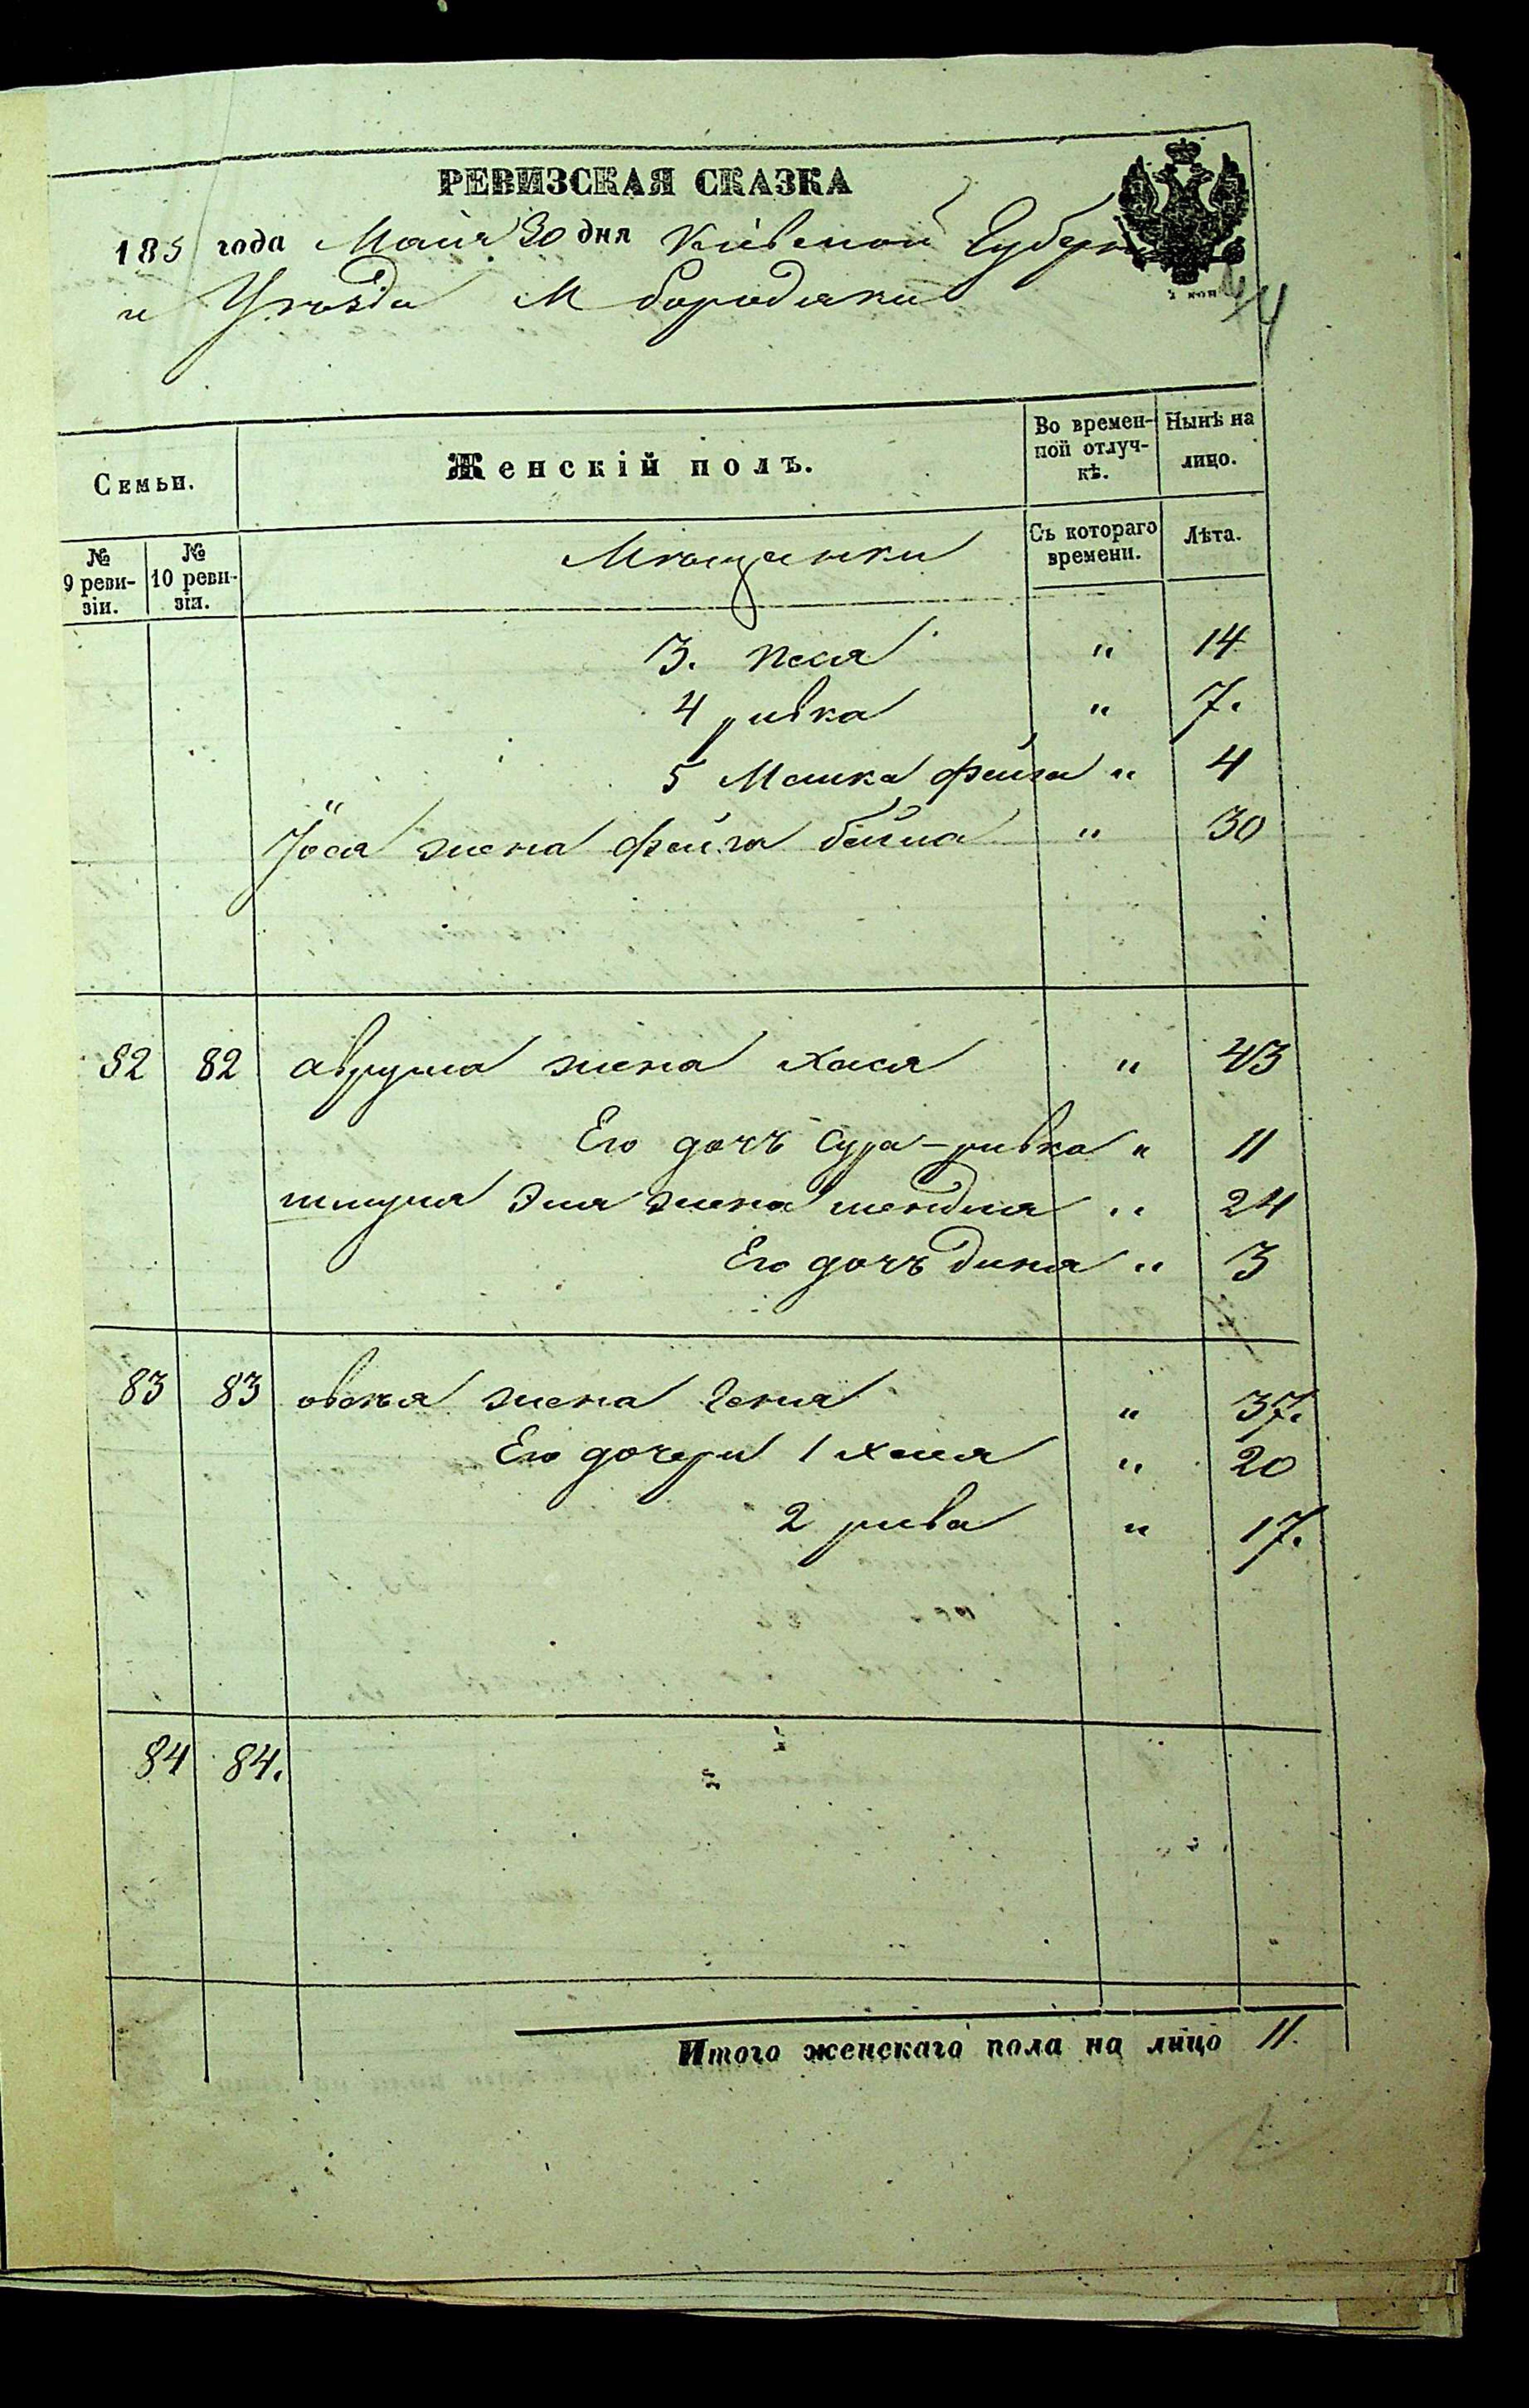 РЕВИЗСКАЯ СКАЗКА
185 года Маия 30 дня Кіевской Губерн
и Уѣзда М Бородянки
Семьи.
Женскій полъ.
Во времен-
ной отлуч-
кѣ.
Нынѣ на
лицо.
№
9 реви-
зіи.
№
10 реви-
зіи.
Мѣщанки
Съ котораго
времени.
Лѣта.
3. Песя " 14
4 ривка " 7.
5 Машка фейга " 4
Іося жена фейга бейла " 30
82 82 аврума жена хася " 43
Его дочъ Сура-ривка " 11
шмуля Эля жена шендля " 24
Его дочъ диня " 3
83 83 овсея жена геня " 37.
Его дочери 1 хася " 20
2 рива " 17.
84 84.
Итого женскаго пола на лицо 11.